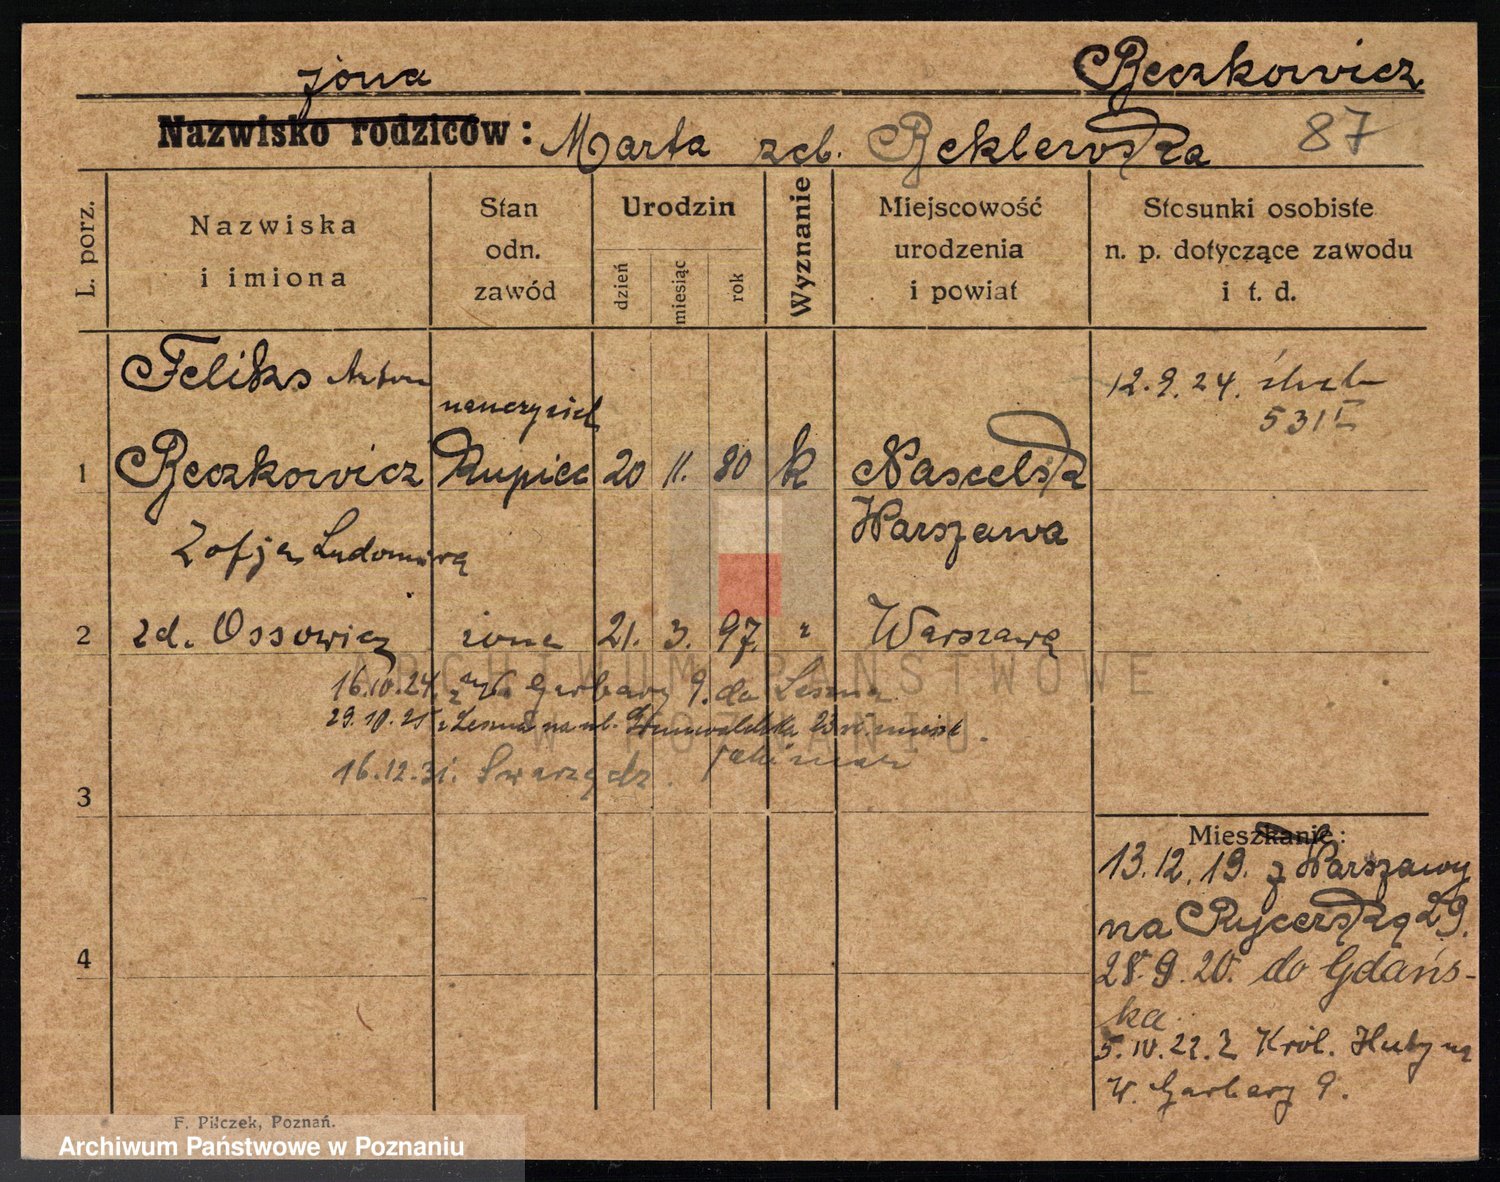 żona Reczkowicz
Nazwisko rodziców: Marta zeb. Reklewska 87
L. porz.
Nazwiska i imiona
Stan odn. zawód
Urodzin
dzień miesiąc rok
Wyznanie
Miejscowość urodzenia i powiat
Stosunki osobiste n. p. dotyczące zawodu i t. d.
Feliks
nauczyciel
12.9.24. ślub
531
1 Reczkowicz Kupiec 20 11. 80 k
Warszawa
Zofja Ludomira
2 zd. Ossowicz żona 21. 3. 97. " Warszawa
16.10.24. Garbary 9. do Leszna
29.10.25 z Leszna na ul. Grunwaldzka
16.12.31. Swarzędz.
3
Mieszkanie:
13.12.19. z Warszawy
na Rycerską 29.
4
28.9.20. do Gdańs-
ka
5.IV.22. z Król. Huty na
W. Garbary 9.
F. Pilczek, Poznań.
ARCHIWUM PAŃSTWOWE
W POZNANIU
Archiwum Państwowe w Poznaniu